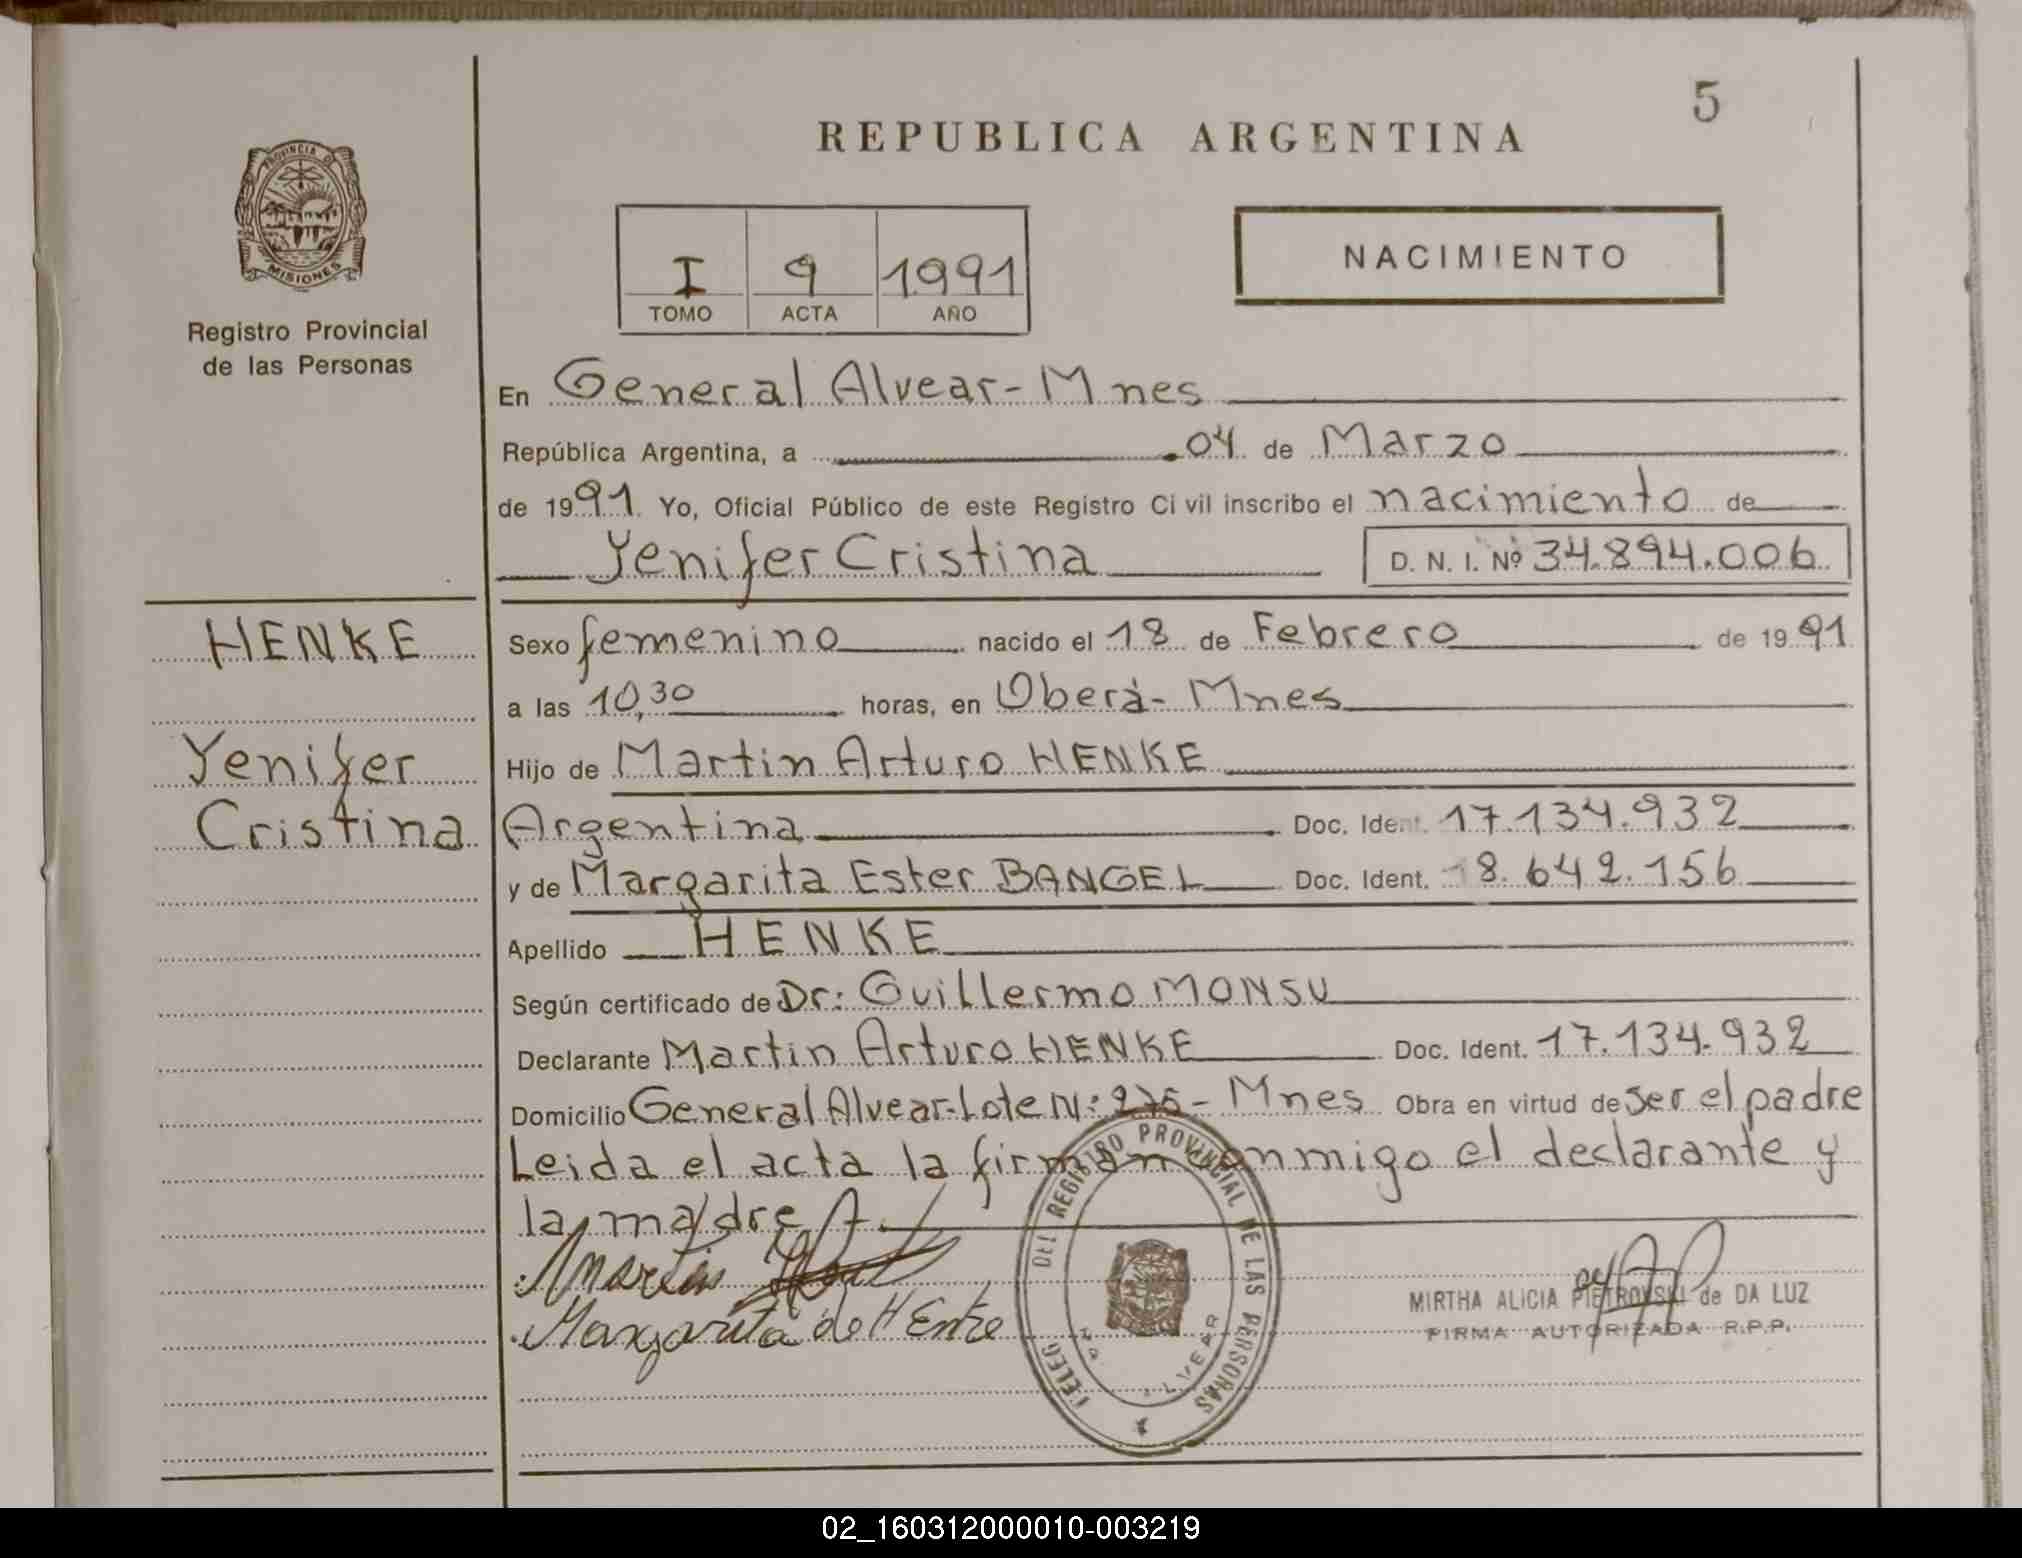 5
REPUBLICA ARGENTINA
PROVINCIA DE
MISIONES
Registro Provincial
de las Personas
I 9 1991
TOMO ACTA AÑO
NACIMIENTO
En General Alvear - Mnes
República Argentina, a 04 de Marzo
de 1991 Yo, Oficial Público de este Registro Civil inscribo el nacimiento de
Yenifer Cristina D. N. I. Nº 34.894.006
HENKE
Yenifer
Cristina
Sexo femenino nacido el 18 de Febrero de 1991
a las 10,30 horas, en Oberá - Mnes
Hijo de Martin Arturo HENKE
Argentina Doc. Ident. 17.134.932
y de Margarita Ester BANGEL Doc. Ident. 18.642.156
Apellido HENKE
Según certificado de Dr: Guillermo MONSU
Declarante Martin Arturo HENKE Doc. Ident. 17.134.932
Domicilio General Alvear - Lote N: - Mnes Obra en virtud de ser el padre
Leida el acta la firman conmigo el declarante y
la madre
Martin
Margarita de HEnke
DEL REGISTRO PROVINCIAL DE LAS PERSONAS
ALVEAR
MIRTHA ALICIA PIETROVSKI de DA LUZ
FIRMA AUTORIZADA R.P.P.
02_160312000010-003219